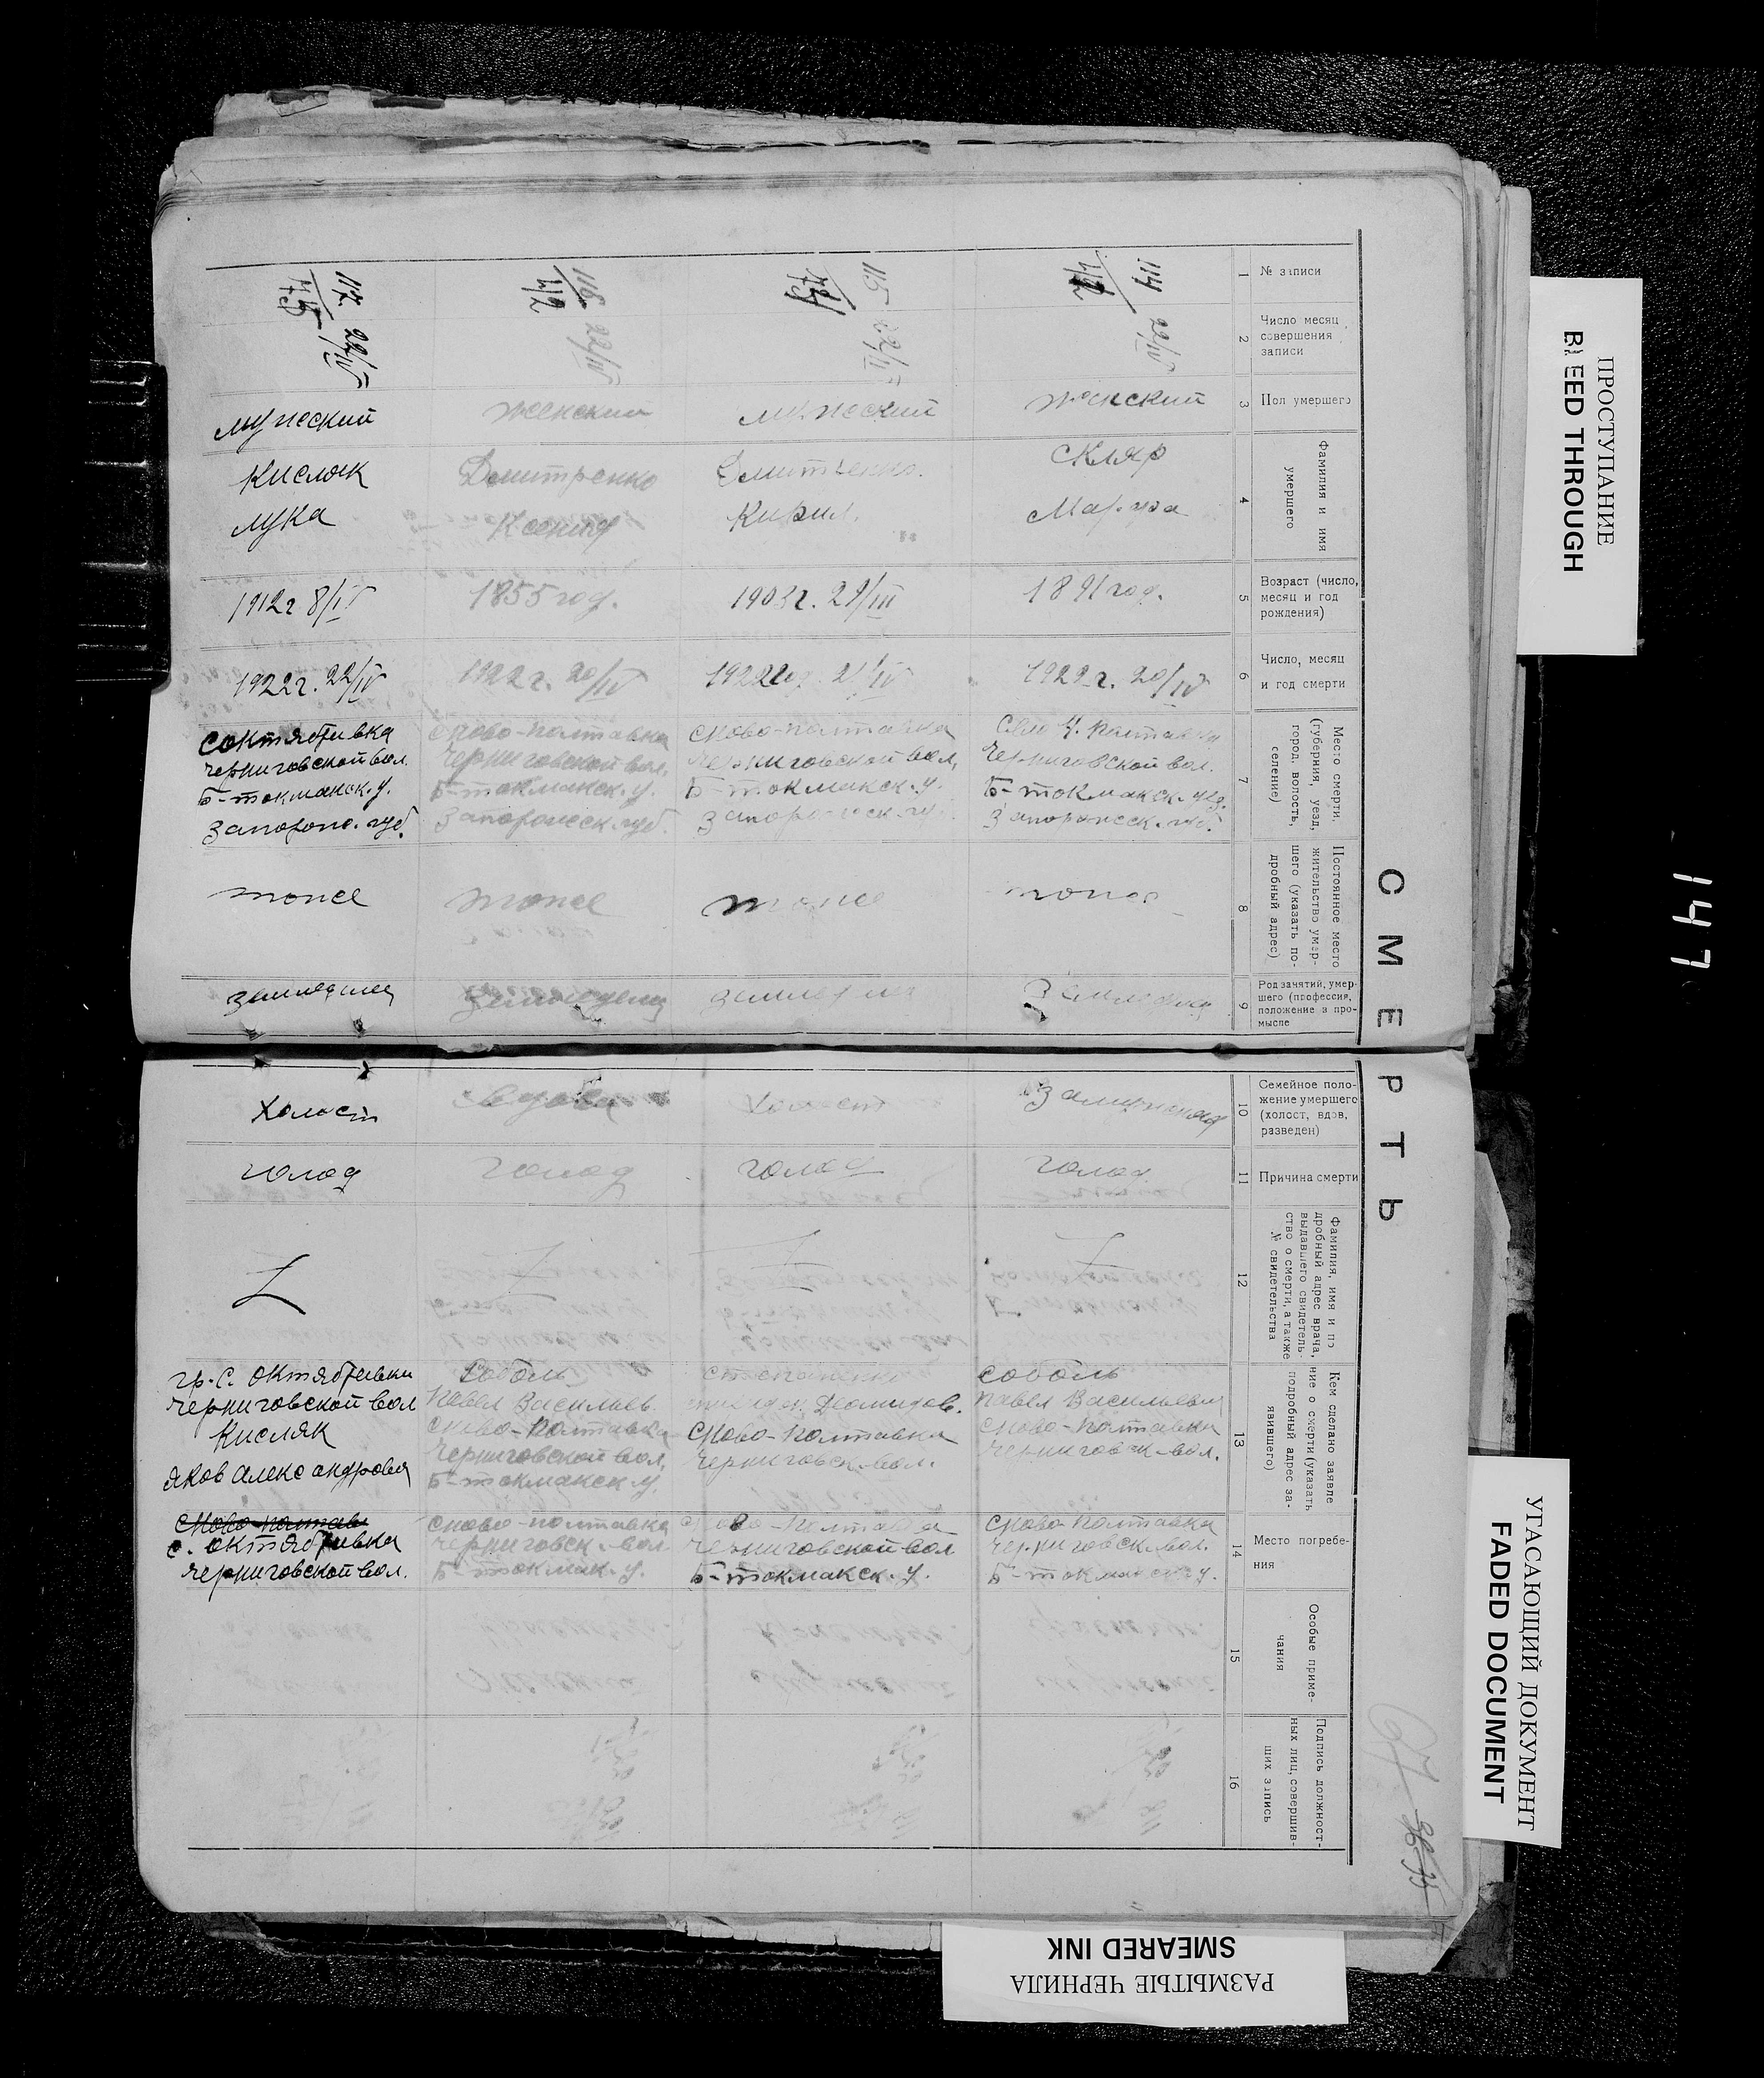 СМЕРТЬ
1
№ записи
2
Число месяц
совершения
записи
3
Пол умершего
4
Фамилия и имя
умершего
5
Возраст (число,
месяц и год
рождения)
6
Число, месяц
и год смерти
7
Место смерти.
(губерния, уезд,
город, волость,
селение)
8
Постоянное место
жительство умер-
шего (указать по-
дробный адрес)
9
Род занятий, умер-
шего (профессия,
положение в про-
мысле
10
Семейное поло-
жение умершего
(холост, вдов,
разведен)
11
Причина смерти
12
Фамилия, имя и по
дробный адрес врача,
выдавшего свидетель-
ство о смерти, а также
№ свидетельства
13
Кем сделано заявле
ние о смерти (указать
подробный адрес за-
явившего)
14
Место погребе-
ния
15
Особые приме-
чания
16
Подпись должност-
ных лиц, совершив-
ших запись
114
22/IV
женский
Скляр
Марфа
1891 год.
1922 г. 20/IV
Черниговской вол.
Б-токмакск. уез.
Запорожск. губ.
тоже
Земледелец
Замужняя
голод
Z
Соболь
Павел Васильевич
с Ново-Полтавка
Черниговск. вол.
с Ново-Полтавка
Черниговск. вол.
Б-токмакск. у.
115
мужеский
Дмитренко
Кирил.
1903 г. 29/III
21/IV
с Ново-полтавка
Черниговской вол.
Б-токмакск. у.
Запорожск. гу.
тоже
земледелец
Холост
голод
Z
Демидов.
с Ново-Полтавка
Черниговск. вол.
с Ново-Полтавка
Черниговской вол
Б-токмакск. у.
116
42
22/IV
женский
Дмитренко
Ксения
1855 год.
1922 г. 20/IV
с Ново-полтавка
Черниговской вол.
Б-токмакск. у.
Запорожск. губ.
тоже
Земледелец
Вдова
голод
Z
Соболь
Павел Василиев.
с Ново-Полтавка
Черниговской вол.
Б-токмакск. у.
с Ново-полтавка
Черниговск. вол
Б-токмак. у.
117.
75
22/IV
мужеский
Кисляк
Лука
1912 г 8/IV
1922 г. 22/IV
с Октябривка
Черниговской вол.
Б-токмакск. у.
Запорож. губ.
тоже
земледелец
Холост
голод
Z
гр. с. Октябривки
Черниговской вол
Кисляк
Яков Александрович
с Ново-полтав
с. Октябривка
Черниговской вол.
67
147
ПРОСТУПАНИЕ
BLEED THROUGH
УГАСАЮЩИЙ ДОКУМЕНТ
FADED DOCUMENT
РАЗМЫТЫЕ ЧЕРНИЛА
SMEARED INK